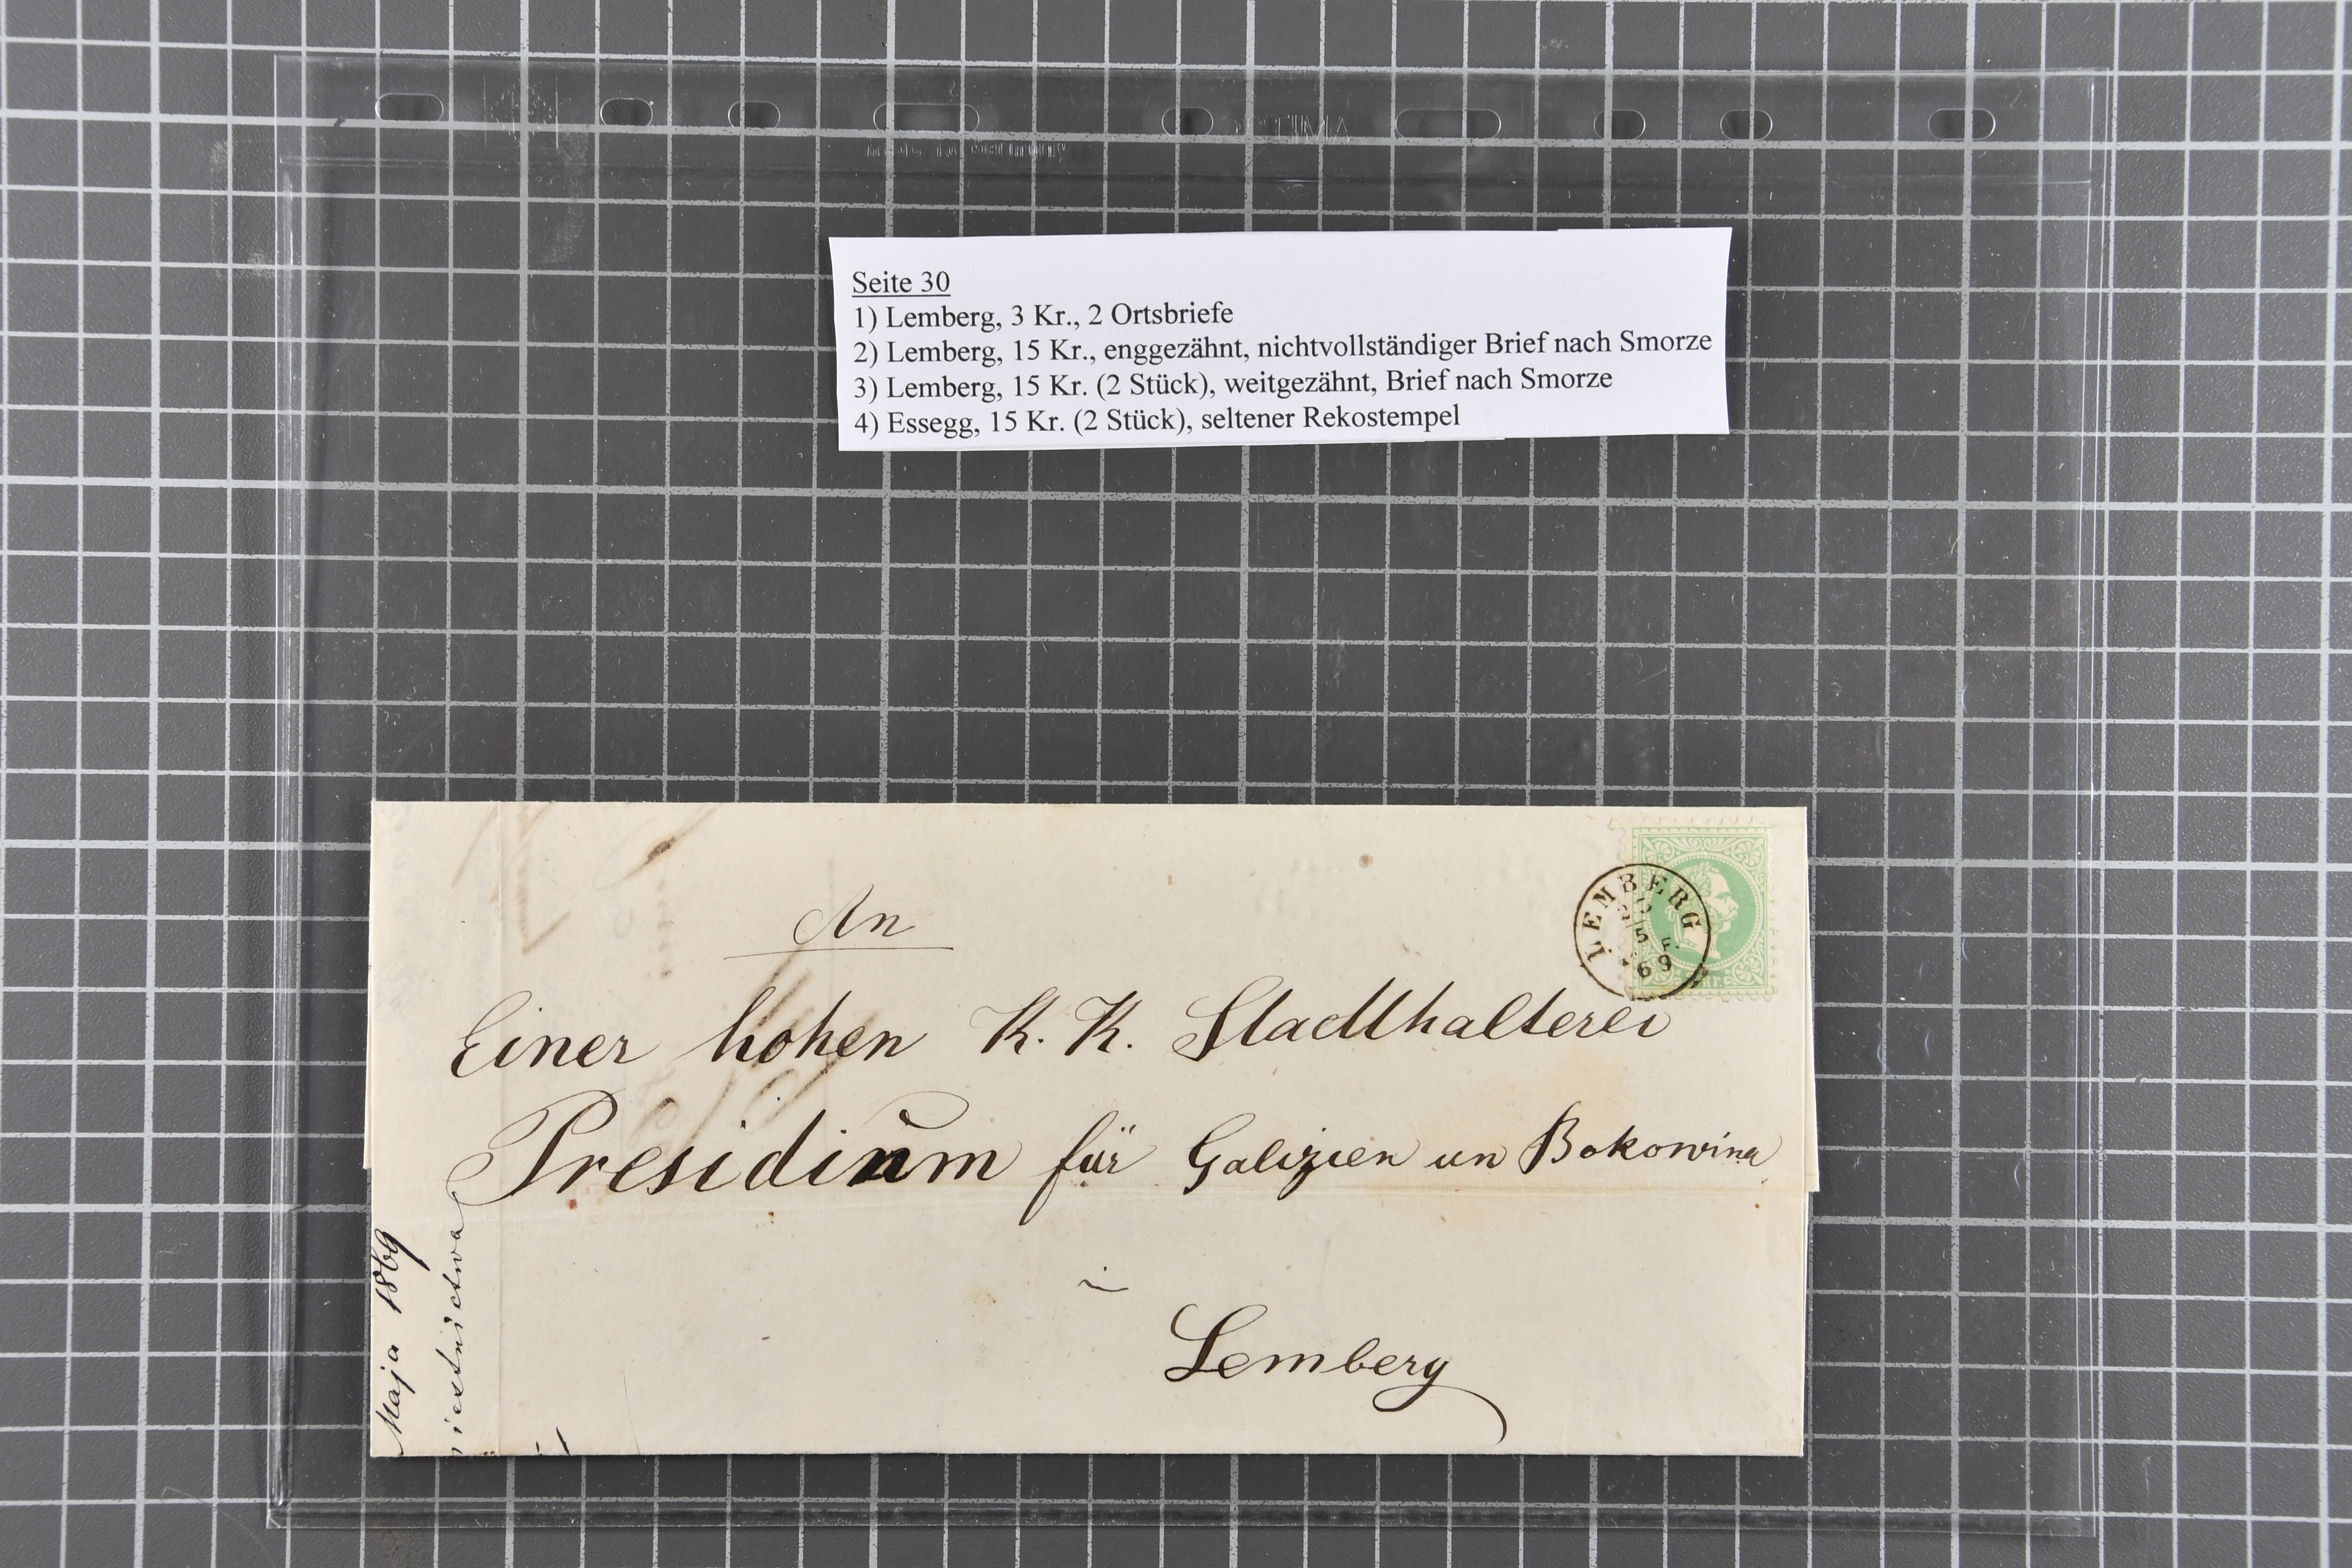 Seite 30
1) Lemberg, 3 Kr., 2 Ortsbriefe
2) Lemberg, 15 Kr., enggezähnt, nichtvollständiger Brief nach Smorze
3) Lemberg, 15 Kr. (2 Stück), weitgezähnt, Brief nach Smorze
4) Essegg, 15 Kr. (2 Stück), seltener Rekostempel
LEMBERG
5
69
An
Einer hohen K. K. Stadthalterei
Presidium für Galizien un Bokowina
i
Lemberg
Maja 1869